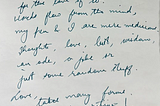 for the love of it.
Words flow from the mind,
my pen & I are mere mediums
thoughts, love, lust, wisdom,
an ode, a joke or
just some random stuff.
Love,
take many forms